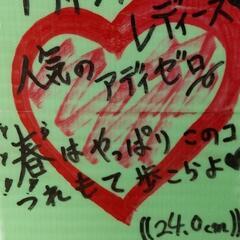 レディース
人気の アディゼロ
春はやっぱりこのコ
つれもて歩こらよ♥
((24.0cm))